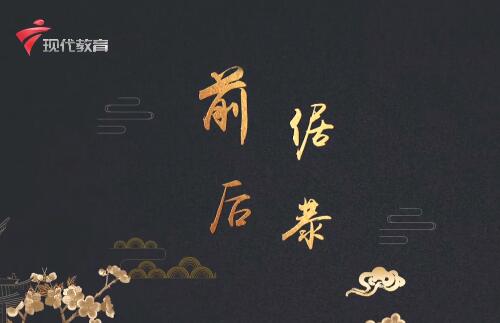 现代教育
前倨
后恭